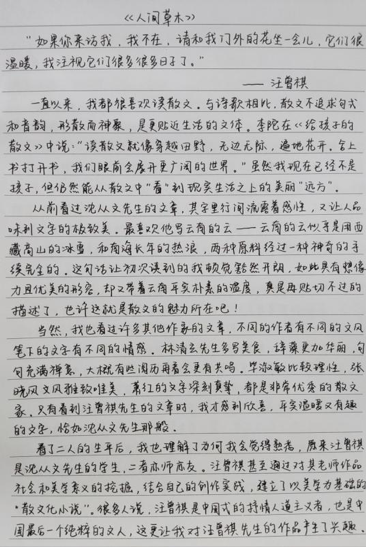 《人间草木》
“如果你来访我，我不在，请和我门外的花坐一会儿，它们很
温暖，我注视它们很多很多日子了。”
——汪曾祺
一直以来，我都很喜欢读散文。与诗歌相比，散文不追求句式
和音韵，形散而神聚，是更贴近生活的文体。李陀在《给孩子的
散文》中说：“读散文就像穿越田野，无边无际，遍地花开。合上
书打开书，我们眼前会展开更广阔的世界。”虽然我现在已经不是
孩子，但仍然能从散文中“看”到现实生活之上的美丽“远方”。
从前看过沈从文先生的文章，其字里行间流露着感性，又让人品
味到文字的极致美。最喜欢他写云南的云——云南的云似乎是用西
藏高山的冰雪，和南海长年的热浪，两种原料经过一种神奇的手
续完全的。这句话让初次读到的我顿觉豁然开朗，如此具有想像
力且优美的形容，却又带着云南平实朴素的温度，真是再贴切不过的
描述了，也许这就是散文的魅力所在吧！
当然，我也看过许多其他作家的文章，不同的作者有不同的文风
笔下的文字有不同的情感。林清玄先生多写美食，辞藻更加华丽，句
句充满禅意，大抵有些阅历再看会更有共鸣。毕淑敏比较理性，张
晓风文风雅致唯美，萧红的文字深刻真挚，都是非常优秀的散文
家。只有看到汪曾祺先生的文章时，我才感到欣喜，平实温暖又有趣
的文字，恰如沈从文先生那般。
看了二人的生平后，我也理解了为何我会觉得熟悉，原来汪曾祺
是沈从文先生的学生，二者亦师亦友。汪曾祺甚至通过对其老师作品
社会和美学意义的挖掘，结合自己的创作实践，建立了以美学为基础的
“散文化小说”。很多人说，汪曾祺是中国式的抒情人道主义者，也是中
国最后一个纯粹的文人，这更让我对汪曾祺先生的作品产生了兴趣。